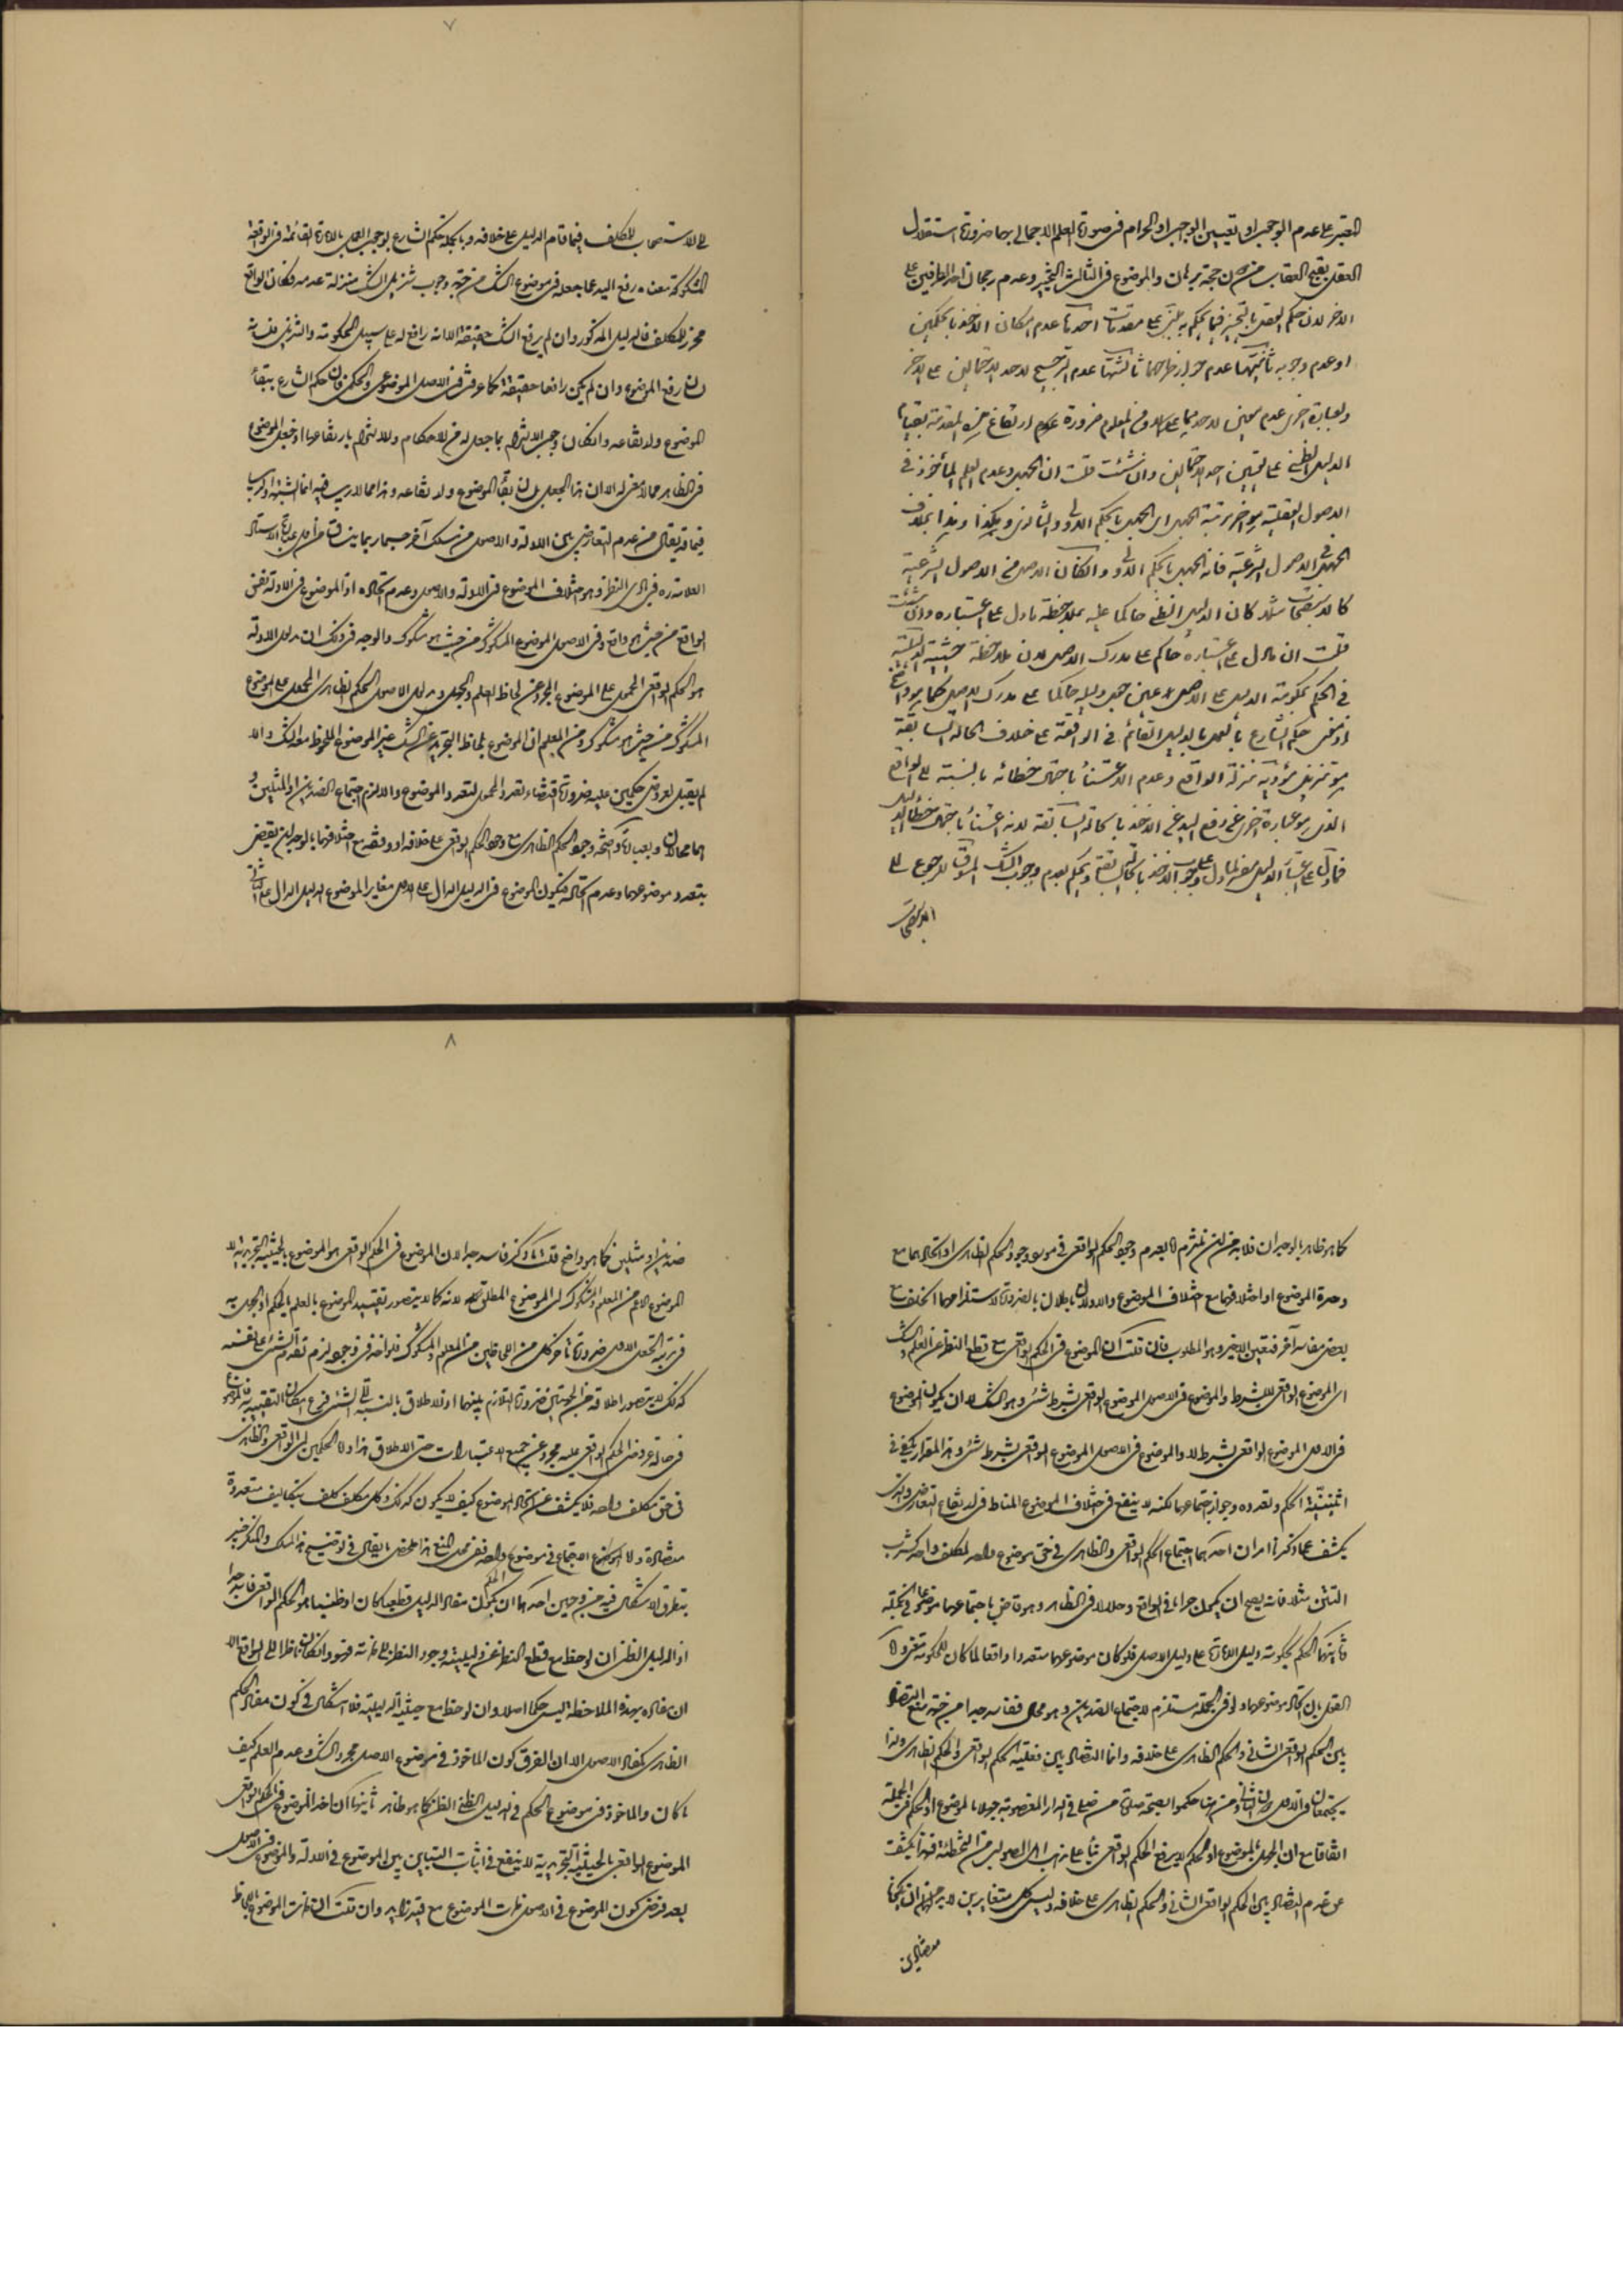 المعتبر على عدم الوجوب او تعيين الواجب او الحرام فى صورة العلم الاجمالى بهما ضرورة استقلال
العقل بقبح العقاب من دون حجة وبرهان والموضوع فى الثالث التخيير وعدم رجحان احد الطرفين على
الاخر لان حكم العقل بالتخيير فيما يحكم به على مقدمات احديها عدم امكان الاخذ بالحكمين
او عدم وجوبه ثانيتها عدم جواز طرحهما ثالثتها عدم الترجيح لاحد الاحتمالين على الاخر
وبعبارة اخرى عدم معين لاحديهما ضرورة عدم ارتفاع هذه المقدمة بقيام
الدليل الظنى على تعيين احد الاحتمالين وان شئت قلت ان الجهل وعدم العلم المأخوذ فى
الاصول العقلية هو اخر مرتبة الجهل اى الجهل بالحكم الاولى والثانوى وهكذا وهذا بخلاف
الجهل فى الاصول الشرعية فانه الجهل بالحكم الاولى وان كان الاصل من الاصول الشرعية
كالاستصحاب مثلا كان الدليل الظنى حاكما عليه بملاحظة ما دل على اعتباره وان شئت
قلت ان ما دل على اعتباره حاكم على مدرك الاصل لان ملاحظة حيثية الدليلية
فى الحكم بحكومة الدليل على الاصل عين جعل دليله حاكما على مدرك الاصل كما هو واضح
اذ معنى حكم الشارع بالعمل بالدليل القائم فى الواقعة على خلاف الحالة السابقة
هو تنزيل مؤديه منزلة الواقع وعدم الاعتناء باحتمال خطائه بالنسبة الى الواقع
الذى هو عبارة اخرى عن رفع اليد عن الاخذ بالحالة السابقة لانه اعتناء باحتمال خطأ الدليل
فما دل على اعتبار الدليل مفسر لما دل على وجوب الاخذ بالحالة السابقة وبحكم بعدم وجوب الرجوع الى
الاستصحاب
٧
الى الاستصحاب للمكلف فيما قام الدليل على خلافه وبالجملة حكم الشارع بوجوب العمل بالامارة القائمة فى الواقعة
المشكوكة معناه رفع اليد عما جعله فى موضوع الشك من جهة وجوب تنزيل الشك منزلة عدمه فكان الواقع
محرز للمكلف فالدليل المذكور وان لم يرفع الشك حقيقة الا انه رافع له على سبيل الحكومة والتنزيل
رفع الموضوع وان لم يكن رافعا حقيقة كما عرفت فى الاصل الموضوعى والحكمى فان حكم الشارع ببقاء
الموضوع ولارتفاعه وان كان وجب الالتزام بما جعل له من الاحكام والالتزام بارتفاعها اذ جعل الموضوع
فى الظاهر مما لا معنى له الا ان هذا الجعل بقاء الموضوع ولارتفاعه وهذا مما لا ريب فيه انما الشبهة
فيما قد يقال من عدم التعارض بين الادلة والاصول من مسلك آخر حسبما ربما ينساق من عبارة الاستاد
العلامة ره فى بادى النظر وهو اختلاف الموضوع فى الادلة والاصول وعدم اتحاده اذ الموضوع فى الادلة نفس
الواقع من حيث هو واقع وفى الاصول الموضوع المشكوك من حيث هو مشكوك والوجه فى ذلك ان مدلول الادلة
هو الحكم الواقعى المحمول على الموضوع المجرد عن لحاظ العلم والجهل ومدلول الاصول الحكم الظاهرى المجعول على الموضوع
المشكوك من حيث هو مشكوك ومن المعلوم ان الموضوع بلحاظ التجرد عن الشك غير الموضوع الملحوظ معه الشك والا
لم يقبل لعروض حكمين عليه ضرورة اقتضاء تعدد المحمول لتعدد الموضوع والا لزم اجتماع الضدين او المثلين و
هما محالان وبعبارة واضحة وجود الحكم الظاهرى مع وجود الحكم الواقعى على خلافه او وفقه مع اختلافهما بالوجدان يقضى
بتعدد موضوعهما وعدم اتحاده فيكون الموضوع فى الدليل الدال على الاول مغاير الموضوع الدليل الدال على الثانى
كما هو ظاهر بالوجدان فلا بد من ان نلتزم اما بعدم وجود الحكم الواقعى فى مورد وجود الحكم الظاهرى او اتحادهما مع
وحدة الموضوع او اختلافهما مع اختلاف الموضوع والاولان باطلان بالضرورة لاستلزامهما الخلف مع
بعض مفاسد آخر فتعين الاخير وهو المطلوب فان قلت ان الموضوع فى الحكم الواقعى مع قطع النظر عن العلم والشك
اى الموضوع الواقعى لا بشرط والموضوع فى الاصول الموضوع الواقعى بشرط شئ وهو الشك لا ان يكون الموضوع
فى الاول الموضوع الواقعى بشرط لا والموضوع فى الاصول الموضوع الواقعى بشرط شئ وهذا المقدار يكفى فى
اثنينية الحكم وتعدده وجواز اجتماعهما لكنه لا ينفع فى اختلاف الموضوع المناط فى ارتفاع التعارض والذى
يكشف عما ذكرنا امران احدهما اجتماع الحكم الواقعى والظاهرى فى حق موضوع واحد لمكلف واحد كشرب
التتن مثلا فانه يصح ان يكون حراما فى الواقع وحلالا فى الظاهر وهو قاض باجتماعهما موضوعا فى الجملة
ثانيهما الحكم بحكومة دليل الامارة على دليل الاصل فلو كان موضوعهما متعددا واقعا لما كان للحكومة معنى ولا
القول بان اتحاد موضوعهما ولو فى الجملة مستلزم لاجتماع الضدين وهو محال ففاسد جدا من جهة منع التضاد
بين الحكم الواقعى الشأنى والحكم الظاهرى على خلافه وانما التضاد بين فعلية الحكم الواقعى والحكم الظاهرى ولذا
يجتمعان فى الاول دون الثانى ومن هنا حكموا بصحة صلوة من صلى فى الدار المغصوبة جهلا بالموضوع او الحكم فى الجملة
اتفاقا مع ان الجهل بالموضوع او الحكم لا يرفع الحكم الواقعى بناء على مذهب اهل الصواب من التخطئة فهذا يكشف
عن عدم التضاد بين الحكم الواقعى الشأنى والحكم الظاهرى على خلافه وليس كل متغايرين لا بد من ان يكونا
متضادين
٨
ضدين او مثلين كما هو واضح قلت ما ذكر فاسد جدا لان الموضوع فى الحكم الواقعى هو الموضوع بالحيثية التجريدية لا
الموضوع الاعم من المعلوم والمشكوك اى الموضوع المطلق لانه كما لا يتصور تقييد الموضوع بالعلم بالحكم او الجهل به
فى مرتبة الجعل الاول ضرورة تاخر كل من اللحاظين من المعلوم والمشكوك فلو اخذ فى وجوده لزم تقدم الشئ على نفسه
كذلك لا يتصور اطلاقه من الجهتين ضرورة التلازم بينهما اذ الاطلاق بالنسبة الى الشئ فرع امكان التقييد به فالموضوع
فى حالة عروض الحكم الواقعى عليه مجرد عن جميع الاعتبارات حتى الاطلاق هذا واما الحكمين اى الواقعى والظاهرى
فى حق مكلف واحد فلا يكشف عن اتحاد الموضوع كيف لا يكون كذلك وكل مكلف كلف بتكاليف متعددة
متضادة ولا اجتماع فى موضوع واحد ففى محل المنع هذا ملخص ما يقال فى توضيح هذا المسلك ولكنك خبير
بتطرق الاشكال فيه من وجهين احدهما ان كون مفاد الدليل قطعيا كان او ظنيا هو الحكم الواقعى فاسد جدا
اذ الدليل الظنى ان لوحظ مع قطع النظر عن دليليته وجود النظر الى ذاته فهو وان كان ناظرا الى الواقع الا
ان مفاده بهذه الملاحظة ليس حكما اصلا وان لوحظ مع حيثية الدليلية فلا اشكال فى كون مفاد الحكم
الظاهرى كمفاد الاصول الا ان الفرق كون الماخوذ فى موضوع الاصل مجرد الشك وعدم العلم كيف
ما كان والماخوذ فى موضوع الحكم فى الدليل الظنى الظن كما هو ظاهر ثانيهما ان اخذ الموضوع فى الحكم الواقعى
الموضوع الواقعى بالحيثية التجريدية لا ينفع فى اثبات التباين بين الموضوع فى الادلة والموضوع فى الاصول
بعد فرض كون الموضوع فى الاصول ذات الموضوع مع قيد زايد وان قلت ان ذات الموضوع بلحاظ